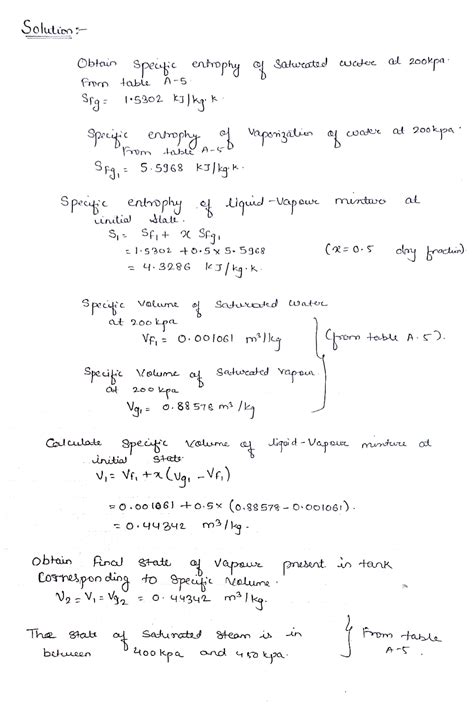 Solution:-
Obtain Specific entrophy of Saturated water at 200kpa.
From table A-5
Sfg = 1.5302 KJ/kg.K.
Specific entrophy of Vaporization of water at 200kpa.
From table A-5
Sfg₁ = 5.5968 KJ/kg.K.
Specific entrophy of liquid-Vapour minture at
initial state.
S₁ = Sf₁ + x Sfg₁
= 1.5302 + 0.5 x 5.5968 (x = 0.5 dry fraction)
= 4.3286 KJ/kg.K.
Specific Volume of Saturated water
at 200kpa
Vf₁ = 0.001061 m³/kg (from table A.5).
Specific Volume of Saturated vapour
at 200kpa
Vg₁ = 0.88578 m³/kg
Calculate Specific Volume of liqoid-Vapour minture at
initial state
V₁ = Vf₁ + x(Vg₁ - Vf₁)
= 0.001061 + 0.5 x (0.88578 - 0.001061).
= 0.44342 m³/kg.
Obtain final state of vapour present in tank
Corresponding to Specific Volume.
V₂ = V₁ = Vg₂ = 0.44342 m³/kg.
The state of Saturated Steam is in From table
between 400kpa and 450kpa. A-5.